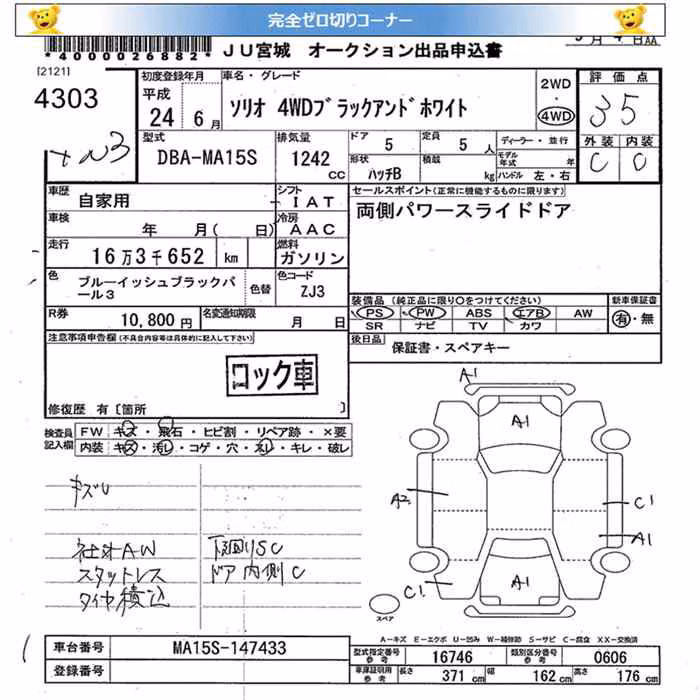 完全ゼロ切りコーナー
*4000026882*
JU宮城 オークション出品申込書
[2121]
4303
初度登録年月 平成 24 6月
車名・グレード
ソリオ 4WDブラックアンドホワイト
2WD ・ 4WD
評価点
3.5
外装 内装
C C
型式
DBA-MA15S
排気量
1242 CC
ドア 5
定員 5 人
形状 ハッチB
積載 kg
ディーラー・並行
モデル年式 年
ハンドル 左・右
車歴 自家用
シフト IAT
車検 年 月( 日)
冷房 AAC
走行 16万3千652 km
燃料 ガソリン
色 ブルーイッシュブラックパール3
色替
色コード ZJ3
R券 10,800円
名変通知期限 月 日
セールスポイント(正常に機能するものに限ります)
両側パワースライドドア
装備品 (純正品に限り○をつけてください)
PS PW ABS エアB AW
SR ナビ TV カワ
新車保証書
有・無
後日品 保証書・スペアキー
注意事項申告欄(不具合内容等は具体的に記入して下さい)
コック車
修復歴 有〔箇所 〕
検査員記入欄
FW キズ・飛石・ヒビ割・リペア跡・×要
内装 キズ・汚レ・コゲ・穴・ネレ・キレ・破レ
キズU
社オAW 下廻りSC
スタットレス ドア内側C
タイヤ積込
A1
A1
A2
C1
A1
C1
A1
スペア
A-キズ E-エクボ U-凹み W-補修跡 S-サビ C-腐食 XX-交換済
車台番号 MA15S-147433
登録番号
型式指定番号 参考 16746
類別区分番号 参考 0606
車庫証明用 参考 長さ 371 cm 幅 162 cm 高さ 176 cm